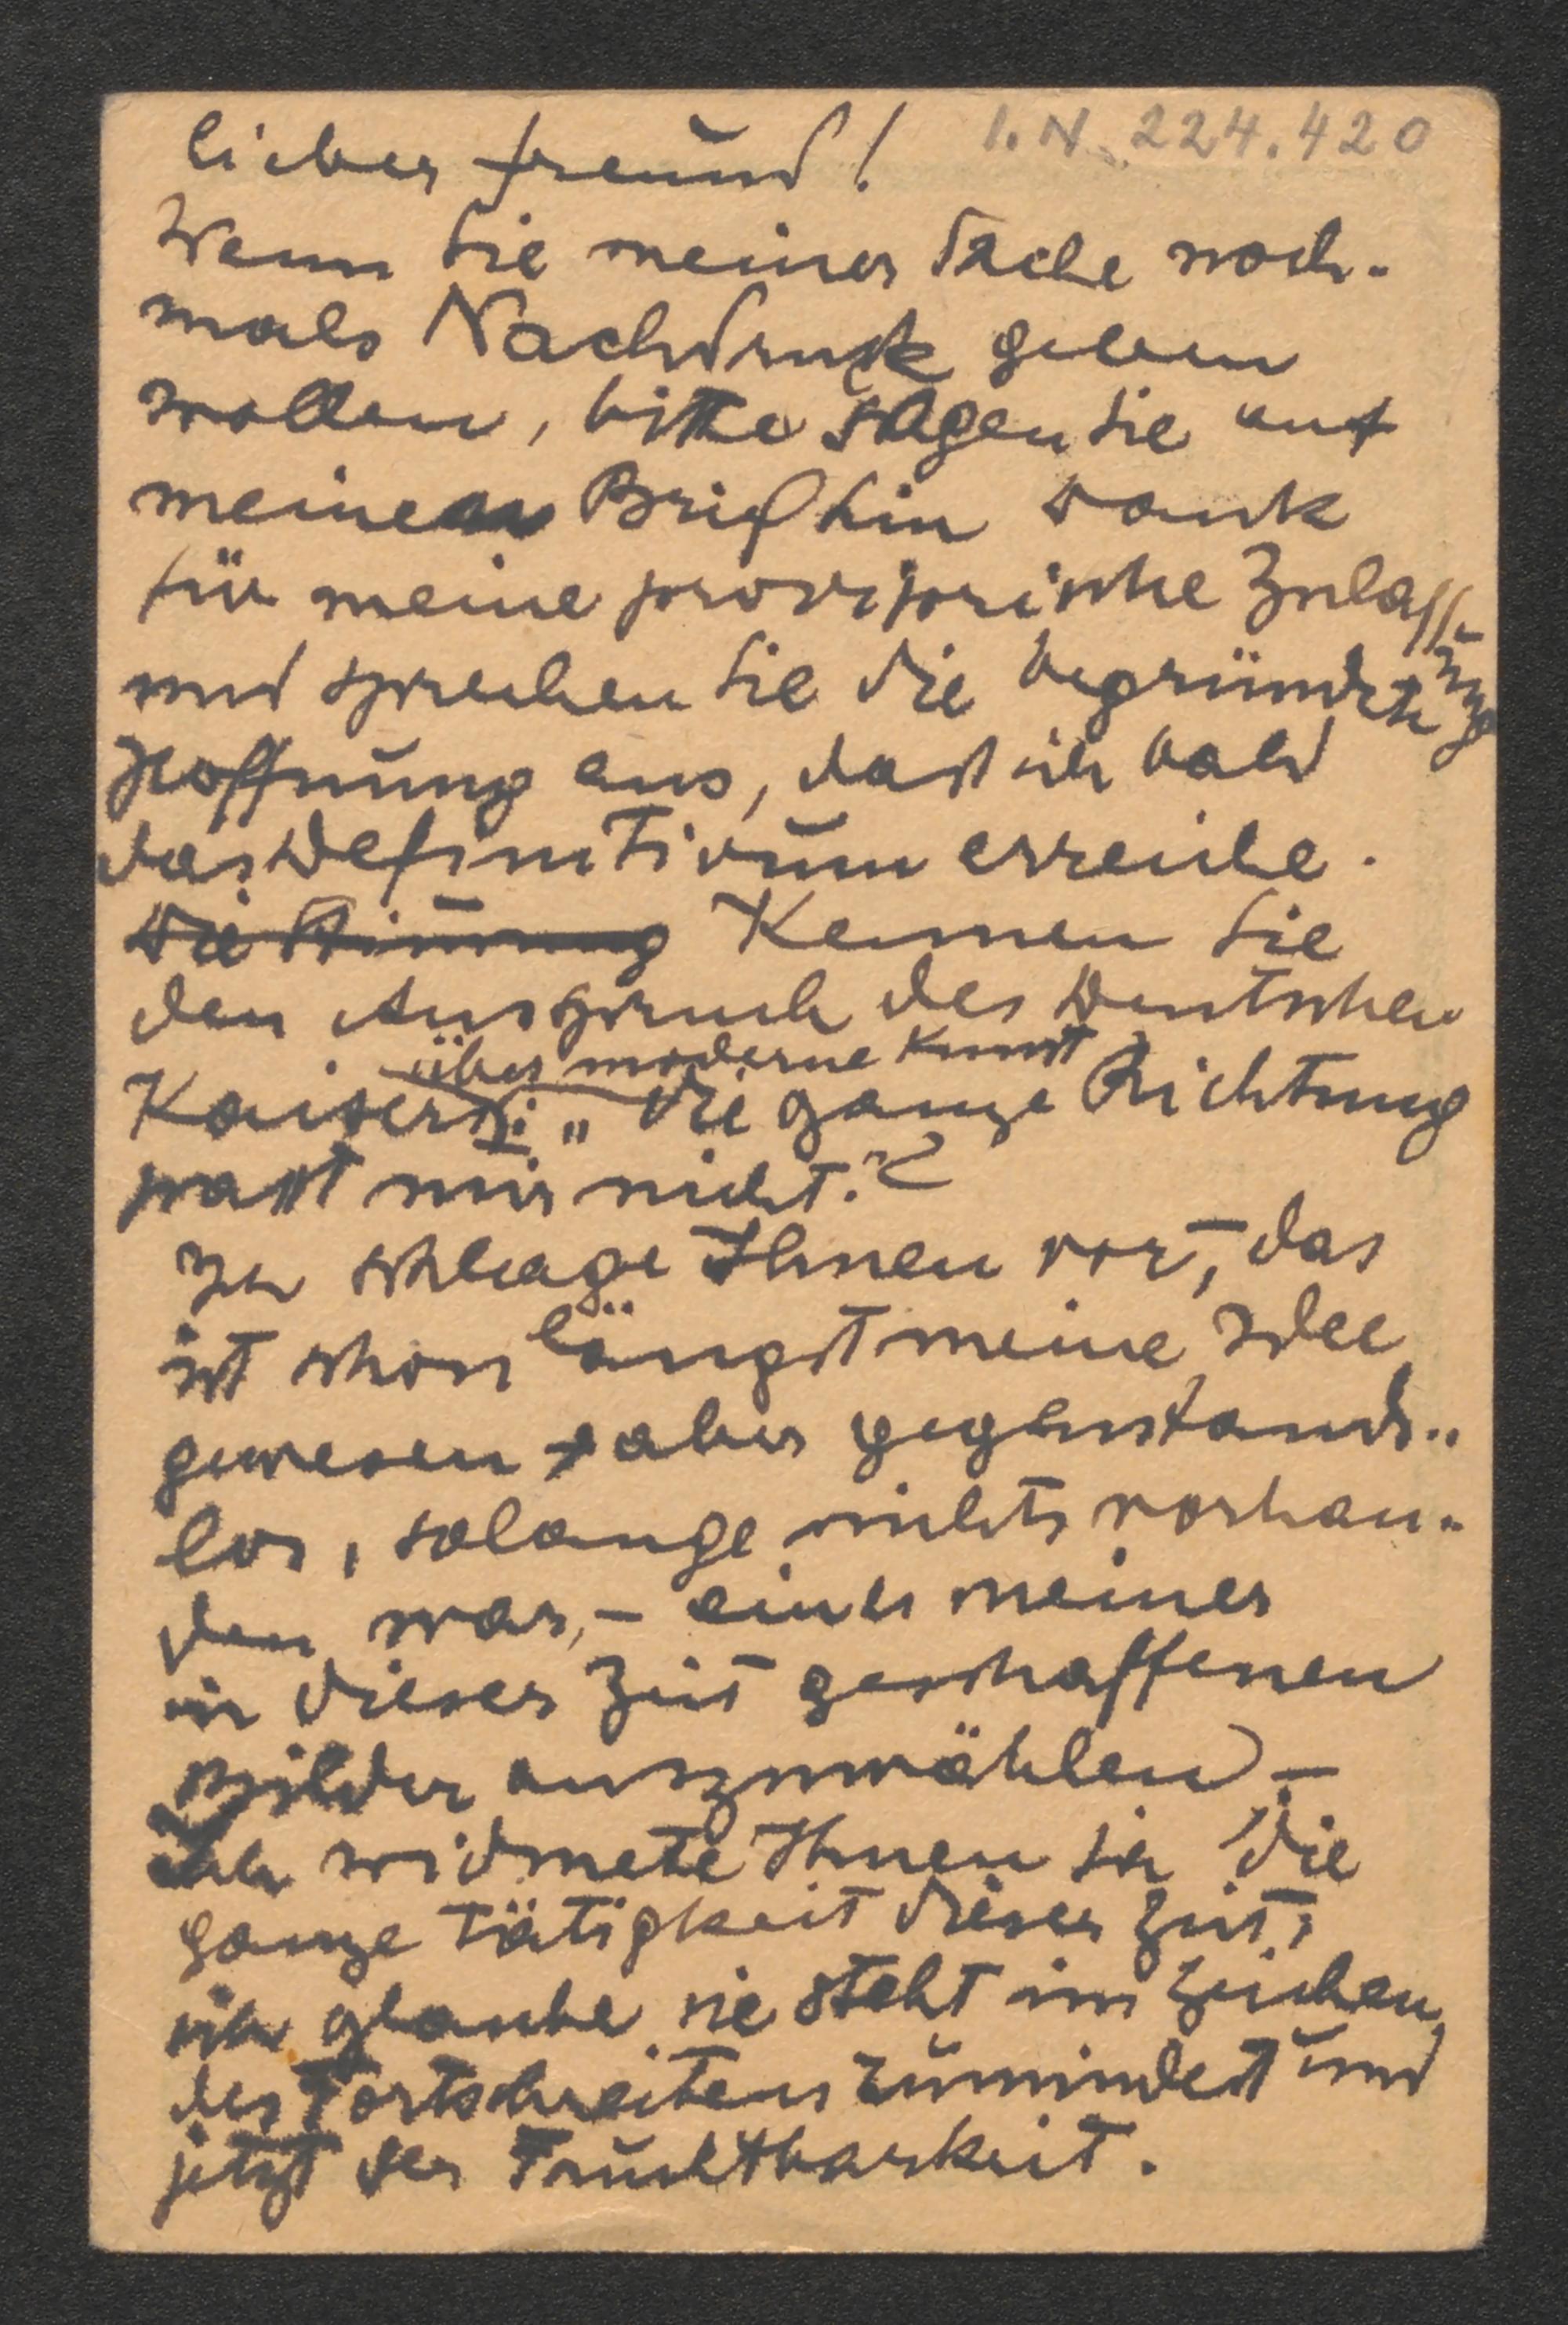 lieber freund! I.N. 224.420
Wenn Sie meiner Sache noch-
mals Nachdruck geben
wollen, bitte sagen Sie auf
meinen Brief hin dank
für meine provisorische Zulassung
und sprechen Sie die begründete
Hoffnung aus, dass ich bald
das Definitivum erreiche.
Die Stimmung Kennen Sie
den Ausspruch des Deutschen
über moderne Kunst
Kaisers: „die ganze Richtung
passt mir nicht."?
Ich schlage Ihnen vor, das
ist schon längst meine Idee
gewesen aber gegenstands-
los, solange nichts vorhan-
den war, – eines meiner
in dieser Zeit geschaffenen
Bilder auszuwählen –
Ich widmete Ihnen ja die
ganze Tätigkeit dieser Zeit,
ich glaube sie steht im Zeichen
des Fortschreitens zumindest und
jetzt der Fruchtbarkeit.